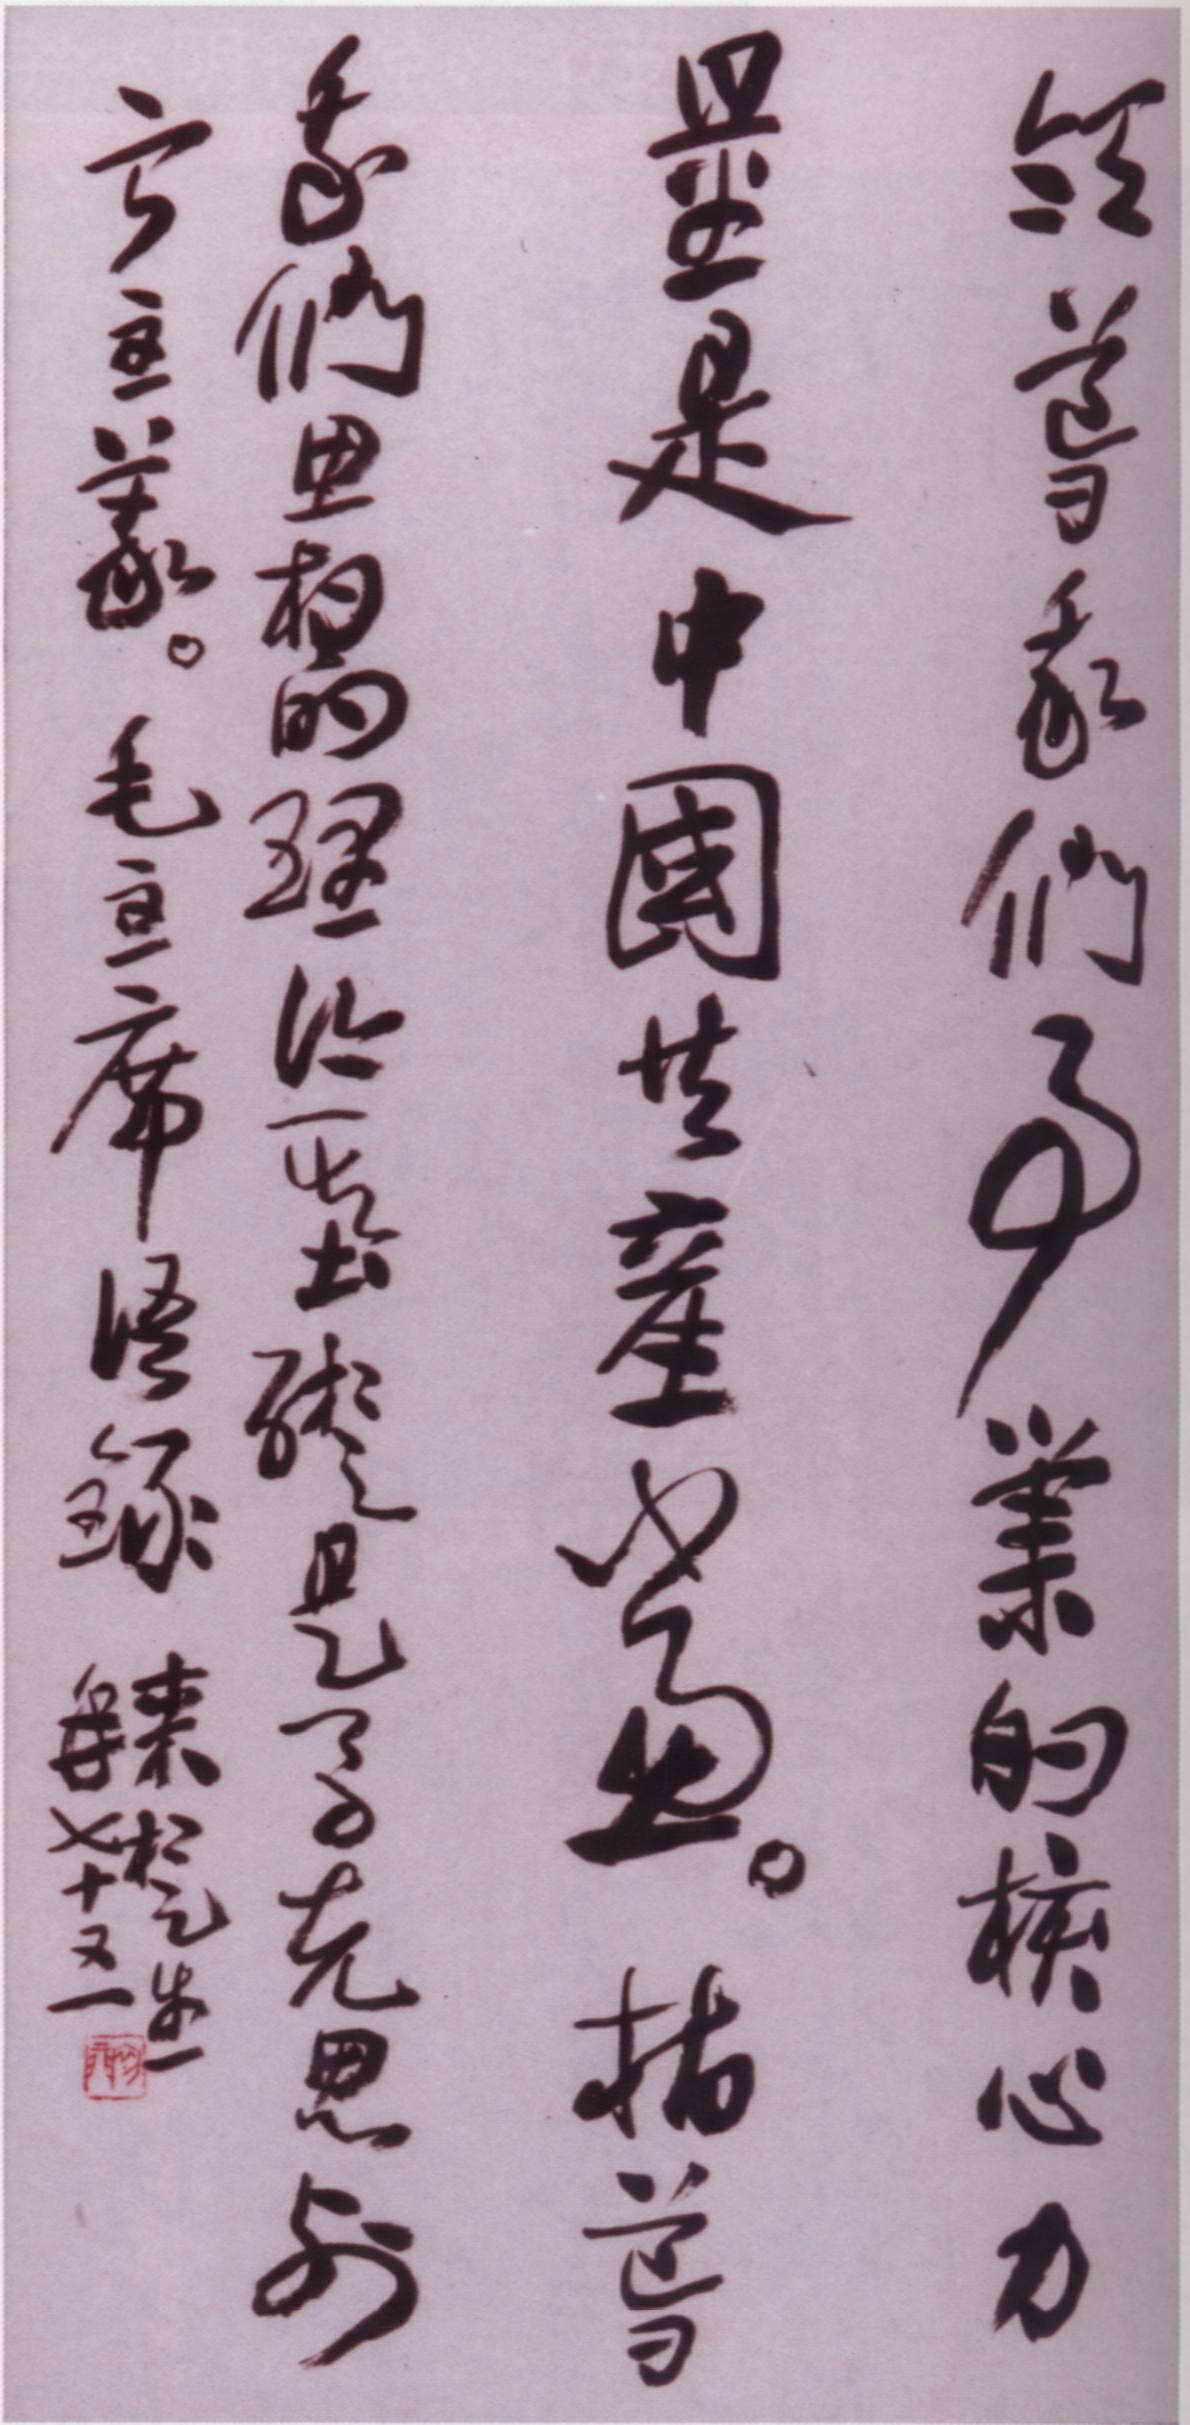 領導我們事業的核心力
量是中國共產黨。指導
我們思想的理論基礎是馬克思列
寧主義。毛主席語錄
集楚生
年七十又一